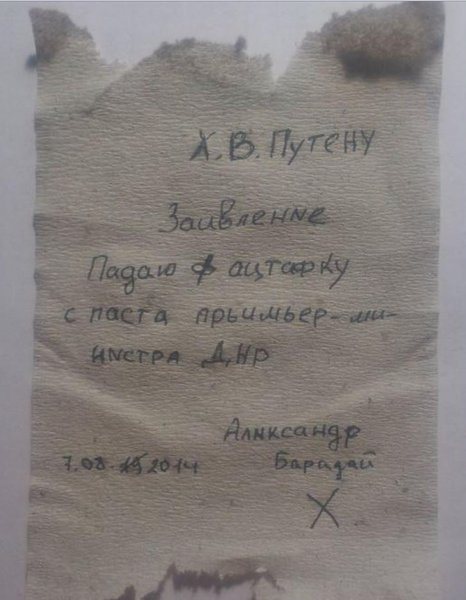 Х.В.Путену
Заивление
Падаю ф ацтафку
с паста прьимьер-ми-
инстра ДНР
Аликсандр
7.08.2014 Барадай
X